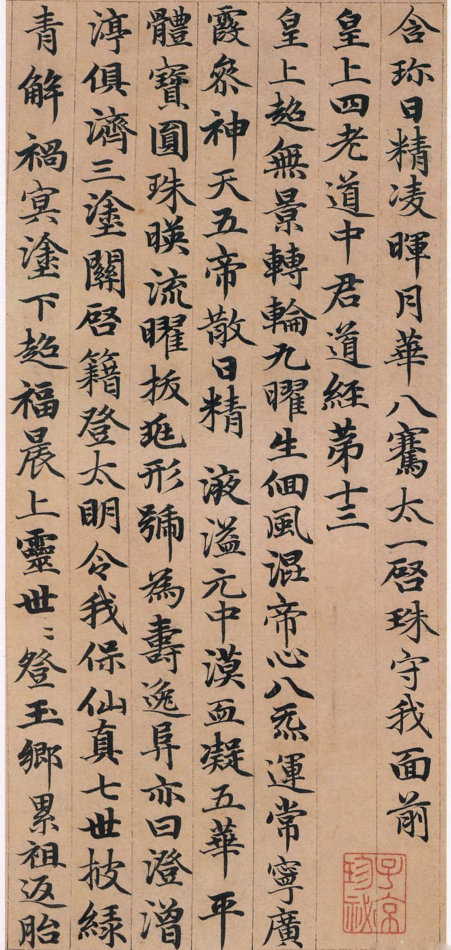 含珎日精凌暉月華八騫太一啓珠守我面前
皇上四老道中君道經苐十三
皇上超無景轉輪九曜生徊風混帝心八炁運常寧廣
霞叅神天五帝散日精 液溢元中漠血凝五華平
體寶圓珠暎流曜拔死形號為壽逸阜亦曰澄
渟俱濟三塗關啓籍登太明令我保仙真七世披綠
青解禍冥塗下超福晨上靈世〻登玉鄉累祖返胎
子京
珍祕